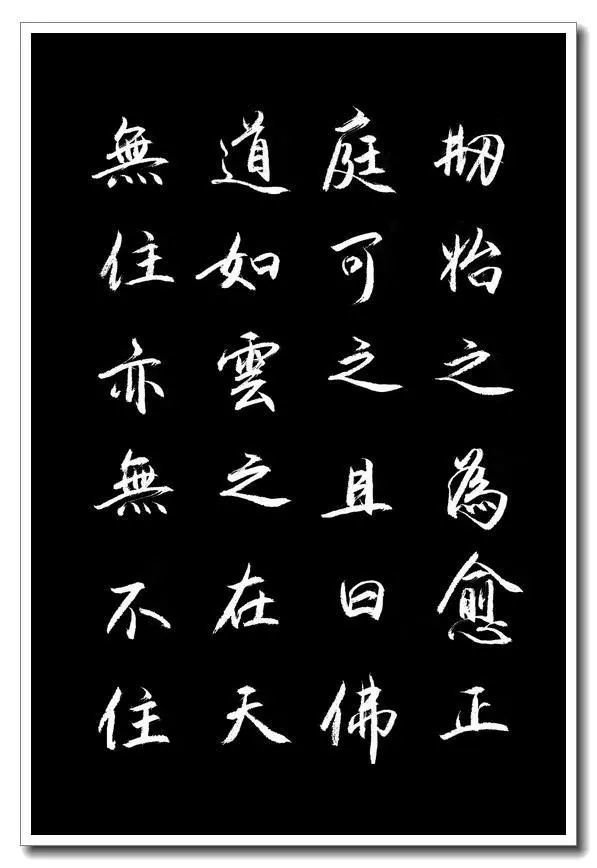 剏始之為愈正
庭可之且曰佛
道如雲之在天
無住亦無不住